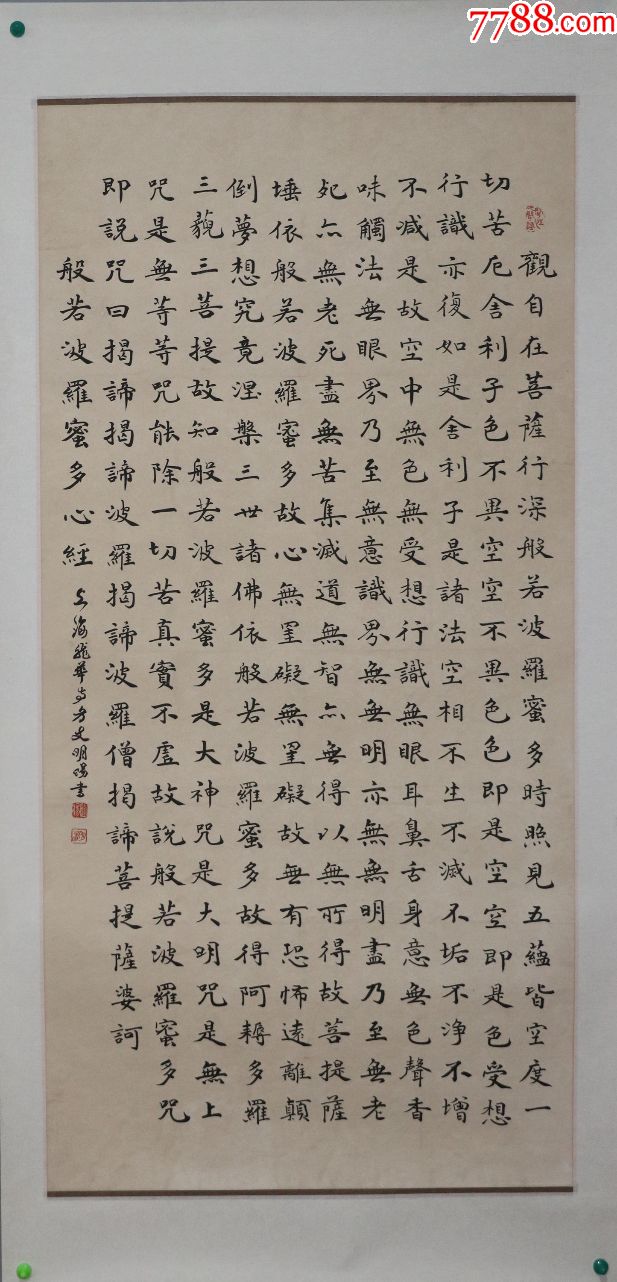 7788.com
觀自在菩薩行深般若波羅蜜多時照見五蘊皆空度一
切苦厄舍利子色不異空空不異色色即是空空即是色受想
行識亦復如是舍利子是諸法空相不生不滅不垢不淨不增
不減是故空中無色無受想行識無眼耳鼻舌身意無色聲香
味觸法無眼界乃至無意識界無無明亦無無明盡乃至無老
死亦無老死盡無苦集滅道無智亦無得以無所得故菩提薩
埵依般若波羅蜜多故心無罣礙無罣礙故無有恐怖遠離顛
倒夢想究竟涅槃三世諸佛依般若波羅蜜多故得阿耨多羅
三藐三菩提故知般若波羅蜜多是大神咒是大明咒是無上
咒是無等等咒能除一切苦真實不虛故說般若波羅蜜多咒
即說咒曰揭諦揭諦波羅揭諦波羅僧揭諦菩提薩婆訶
般若波羅蜜多心經
上海龍華寺方丈明暘書